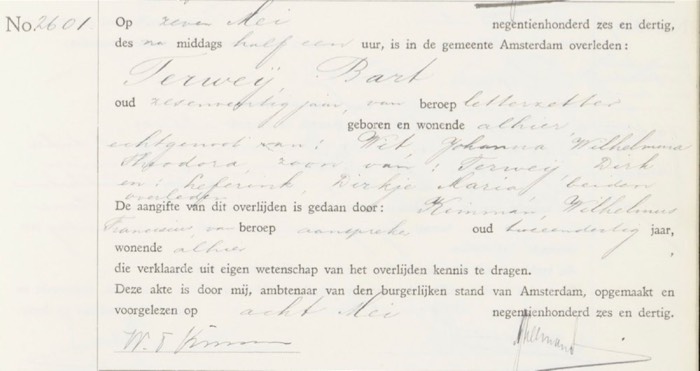 No. 2601.
Op zeven Mei negentienhonderd zes en dertig,
des na middags half een uur, is in de gemeente Amsterdam overleden:
Terweij, Bart
oud zesenveertig jaar, van beroep letterzetter
geboren en wonende alhier,
echtgenoot van: Wit, Johanna Wilhelmina
Theodora, zoon van: Terweij, Dirk
en: Leferink, Dirkje Maria, beiden
overleden
De aangifte van dit overlijden is gedaan door: Kimman, Wilhelmus
Franciscus, van beroep aanspreker oud tweeendertig jaar,
wonende alhier
die verklaarde uit eigen wetenschap van het overlijden kennis te dragen.
Deze akte is door mij, ambtenaar van den burgerlijken stand van Amsterdam, opgemaakt en
voorgelezen op acht Mei negentienhonderd zes en dertig.
W. F. Kimman